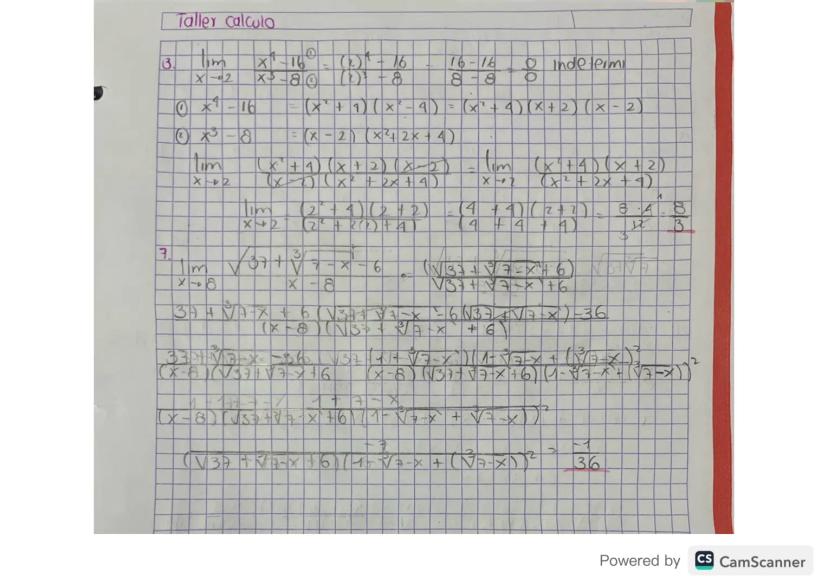 Taller calculo
3. lim x→2 x⁴-16① / x³-8② = (2)⁴-16 / (2)³-8 = 16-16 / 8-8 = 0/0 indetermi
① x⁴-16 = (x²+4)(x²-4) = (x²+4)(x+2)(x-2)
② x³-8 = (x-2)(x²+2x+4)
lim x→2 (x²+4)(x+2)(x-2) / (x-2)(x²+2x+4) = lim x→2 (x²+4)(x+2) / (x²+2x+4)
lim x→2 = (2²+4)(2+2) / (2²+2(2)+4) = (4+4)(2+2) / (4+4+4) = 8·4 / 12 = 8/3
7. lim x→8 √37+∛7-x -6 / x-8 = (√37+∛7-x+6) / √37+∛7-x+6
37+∛7-x + 6(√37+∛7-x - 6(√37+∛7-x)-36 / (x-8)(√37+∛7-x +6)
37+∛7-x -36 / (x-8)(√37+∛7-x+6 (1+∛7-x)(1-∛7-x+(∛7-x)² / (x-8)(√37+∛7-x+6)(1-∛7-x+(∛7-x))²
1+7-x / (x-8)(√37+∛7-x+6)(1-∛7-x+∛7-x))²
/ (√37+∛7-x+6)(1-∛7-x+(∛7-x))² = -1/36
Powered by CS CamScanner